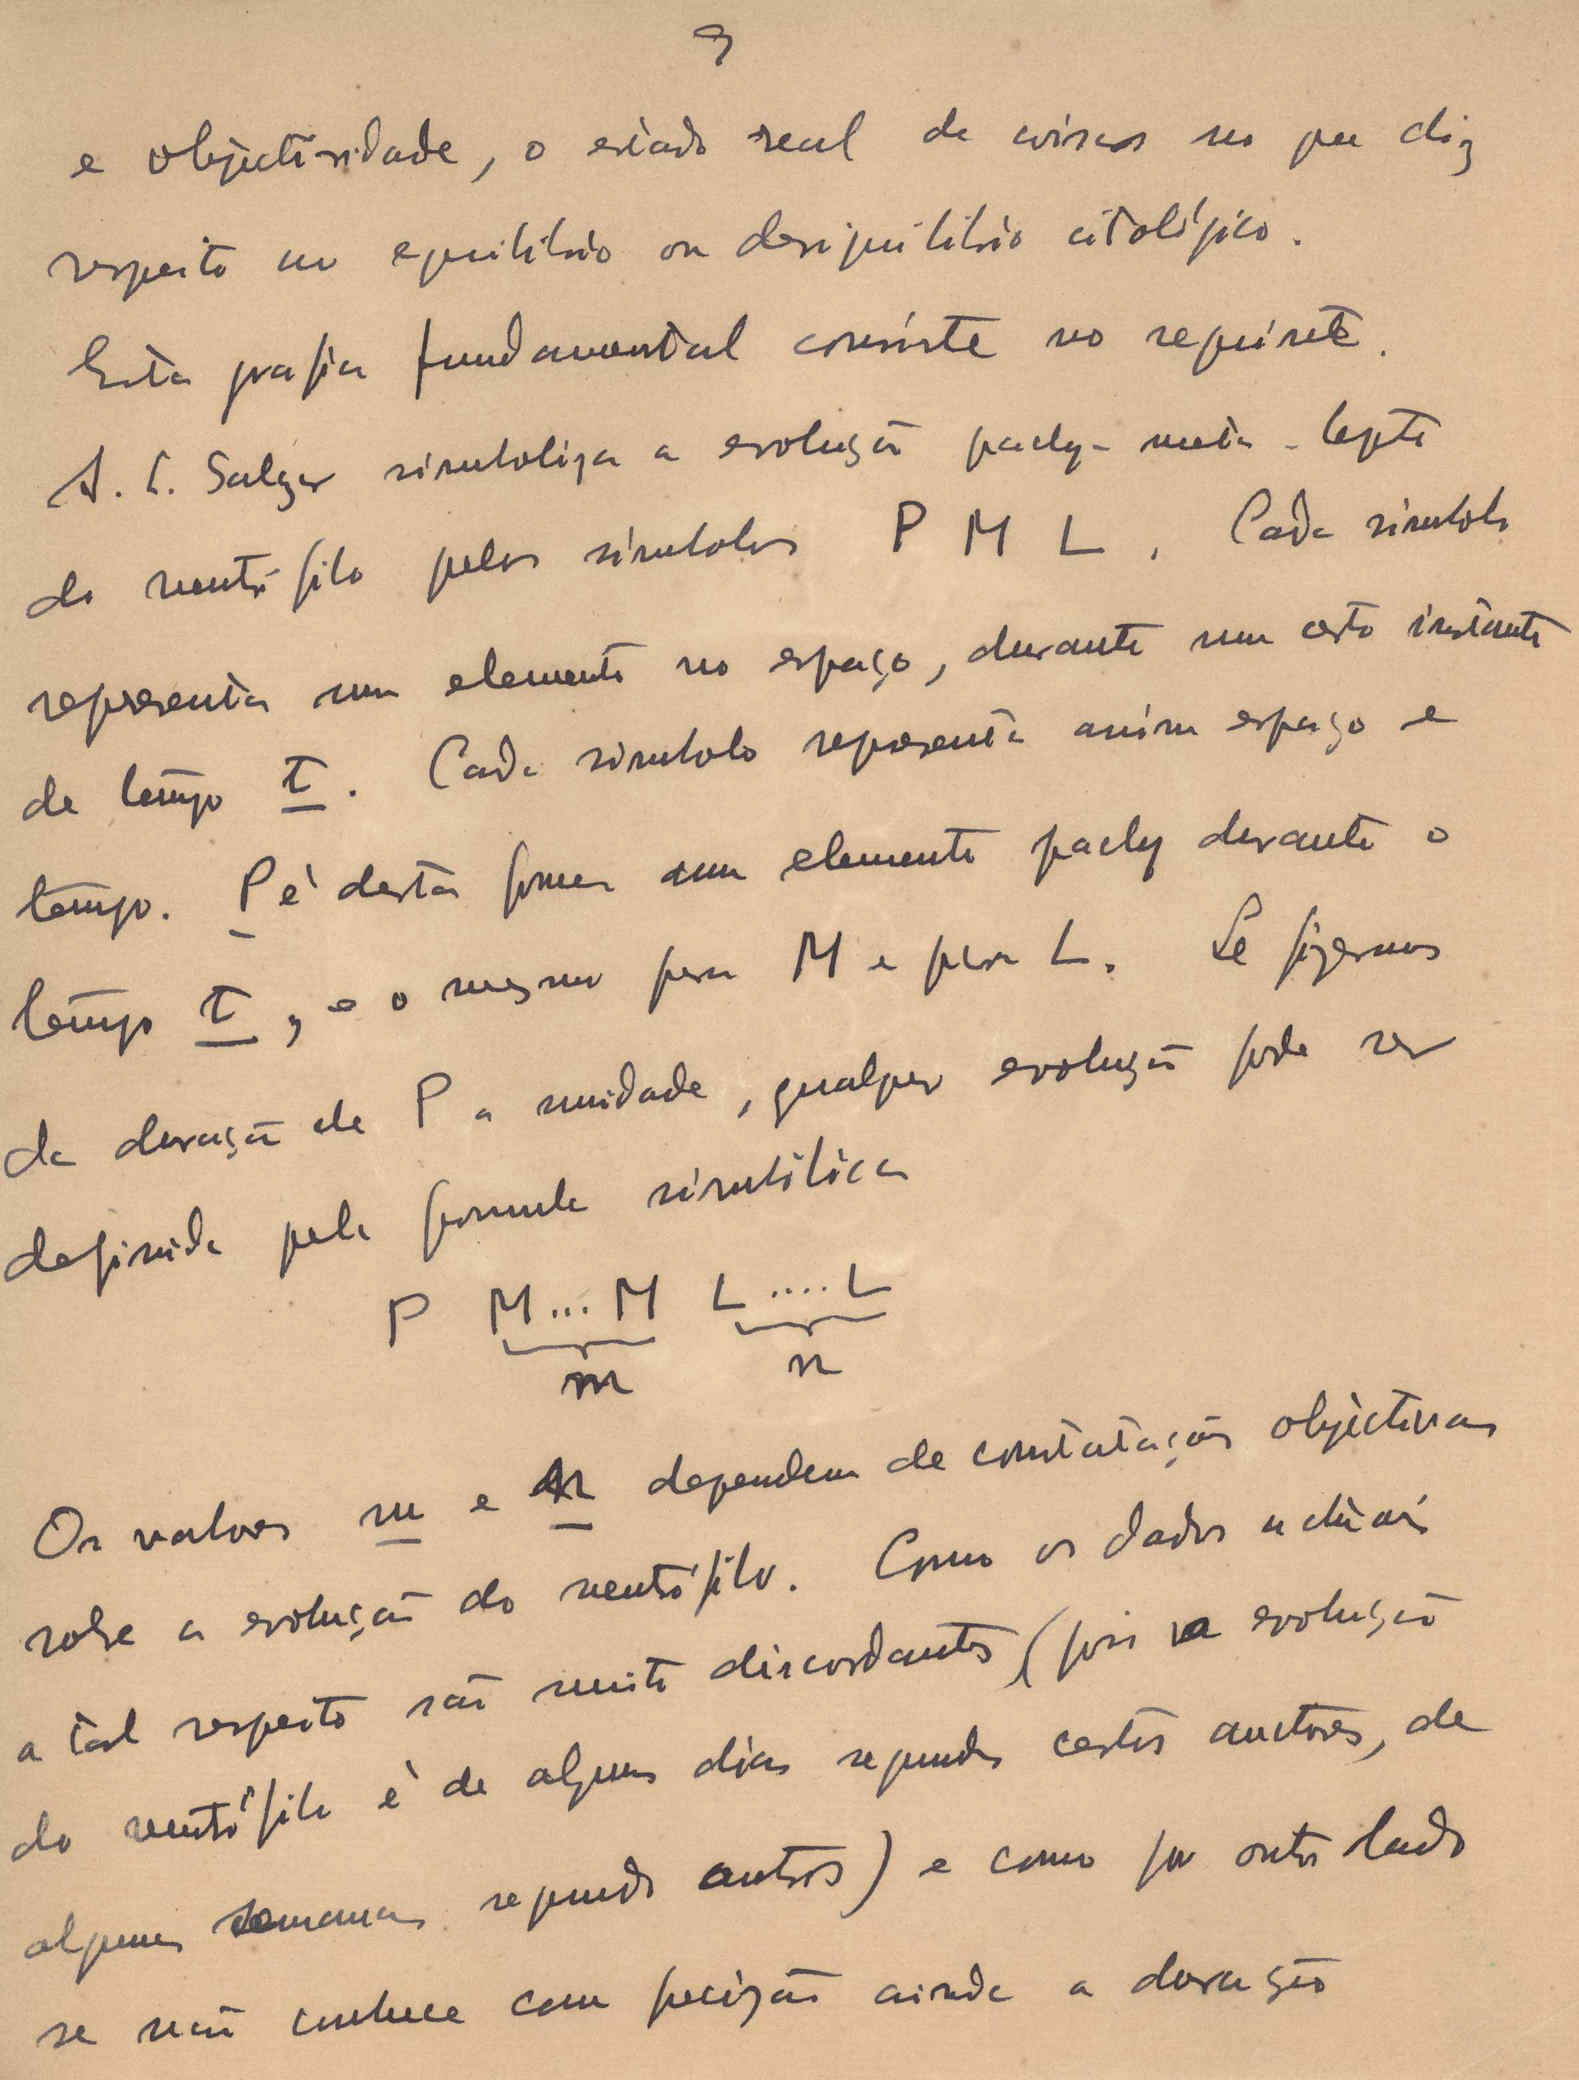 9
e objectividade, o estado real de coisas no que diz
respeito ao equilibrio ou desiquilibrio citológico.
Esta grafia fundamental consiste no seguinte.
A. C. Salazar simboliza a evolução pachy-meta-lepto
do neutrófilo pelos símbolos P M L. Cada símbolo
representa um elemento no espaço, durante um certo instante
de tempo t. Cada símbolo representa assim espaço e
tempo. P é desta forma um elemento pachy durante o
tempo t, e o mesmo para M e para L. Se fizermos
da duração de P a unidade, qualquer evolução pode ser
definida pela formula simbólica
P M...M L....L
m n
Os valores m e n dependem de constatações objectivas
sobre a evolução do neutrófilo. Como os dados actuais
a tal respeito são muito discordantes (pois a evolução
do neutrófilo é de alguns dias segundo certos auctores, de
algumas semanas segundo outros) e como por outro lado
se não conhece com precizão ainda a duração